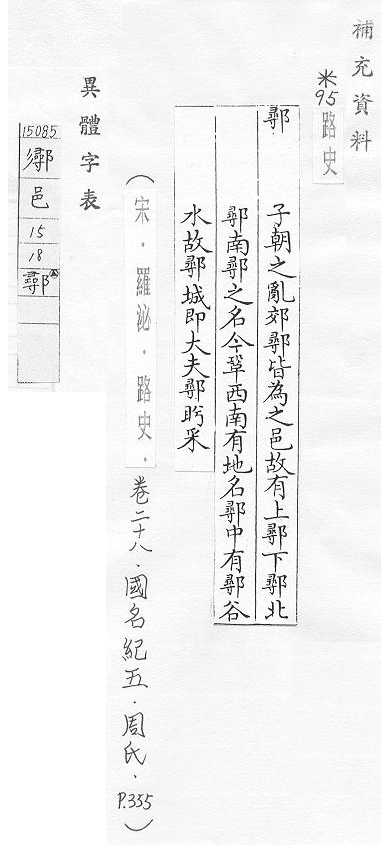 補充資料
※95路史
鄩 子朝之亂郊鄩皆為之邑故有上鄩下鄩北
鄩南鄩之名今鞏西南有地名鄩中有鄩谷
水故鄩城即大夫鄩肹采
(宋．羅泌．路史．卷二十八．國名紀五．周氏．P.355)
異體字表
15085
邑
15
18
鄩